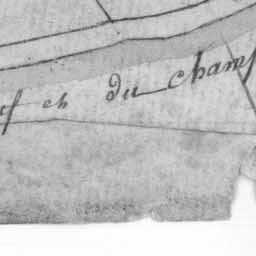 et du champ